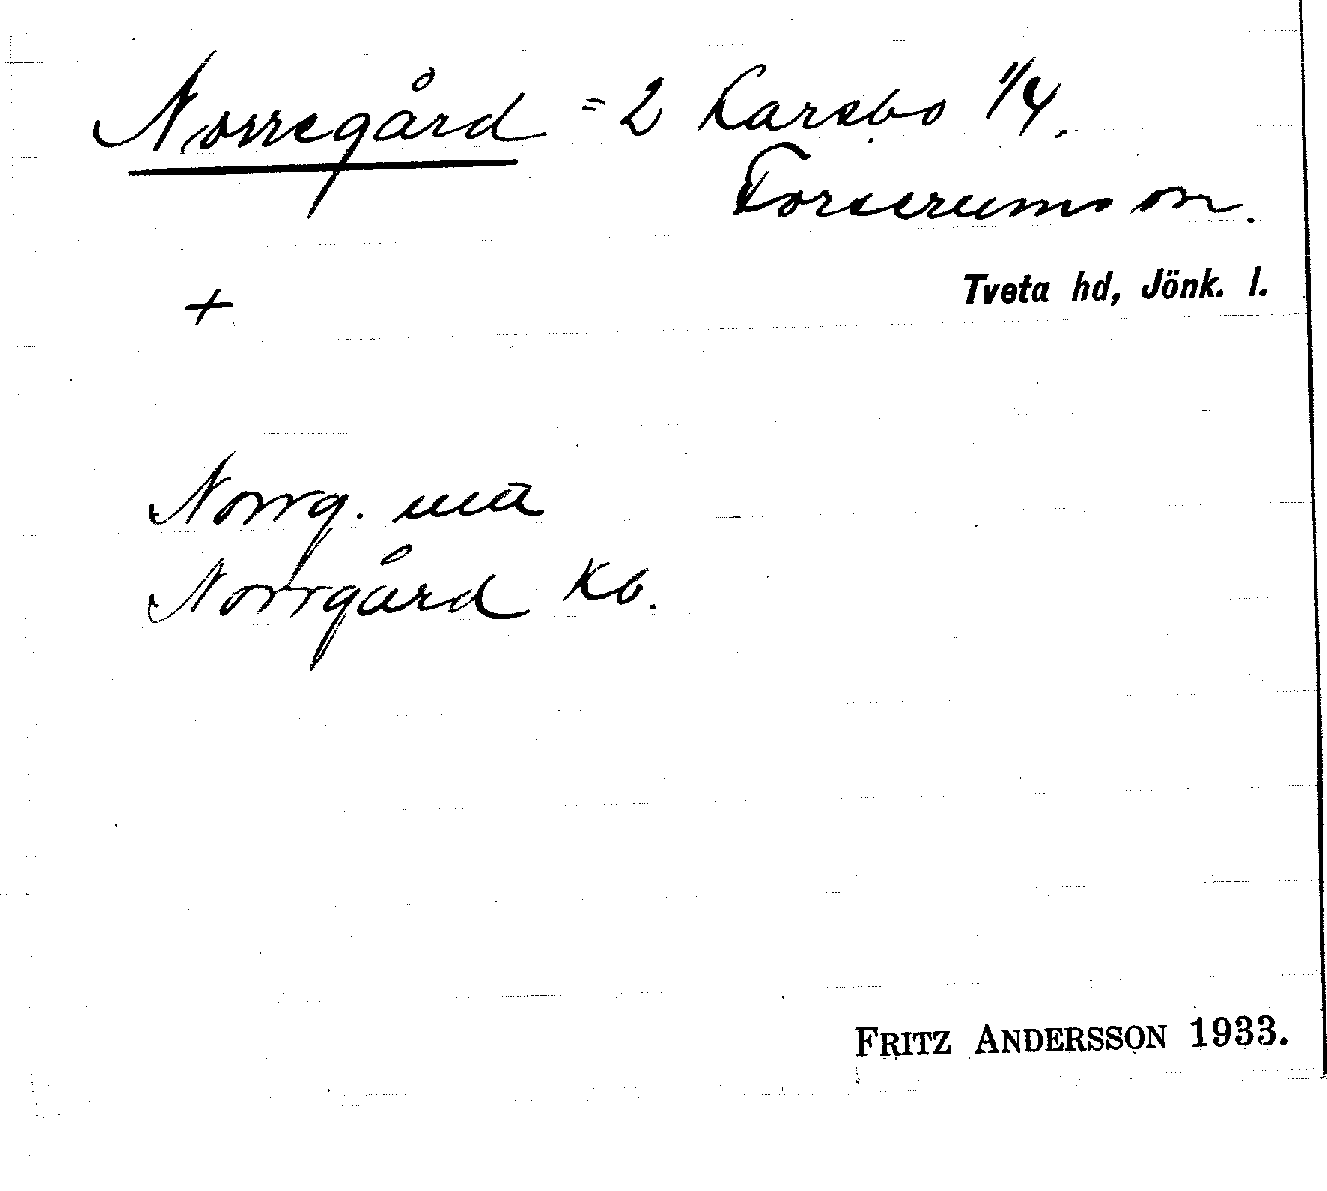 Norregård = 2 Karsbo 1/4.
Forserums sn.
+
Tveta hd, Jönk. l.
Norrg. uā
Norrgård Kb.
FRITZ ANDERSSON 1933.